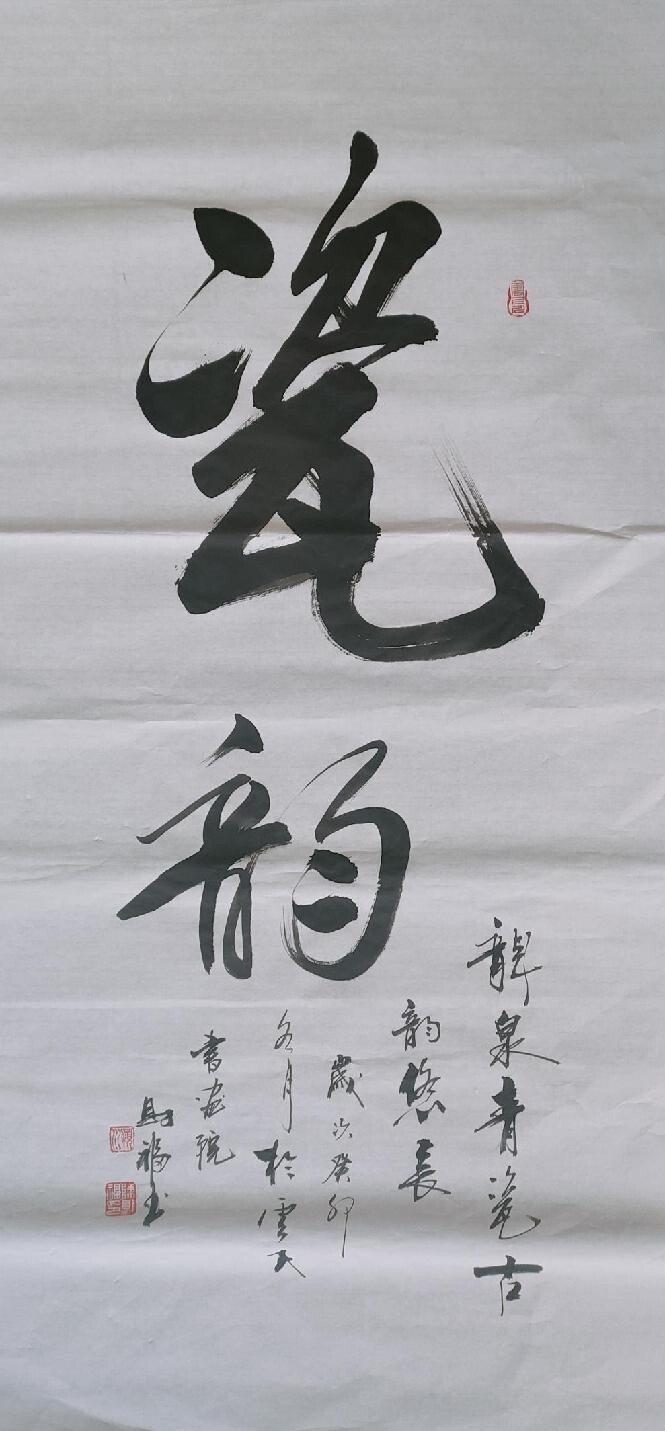 瓷
韵
龍泉青瓷古
韵悠長
歲次癸卯
冬月於雲天
書畫院
財福书